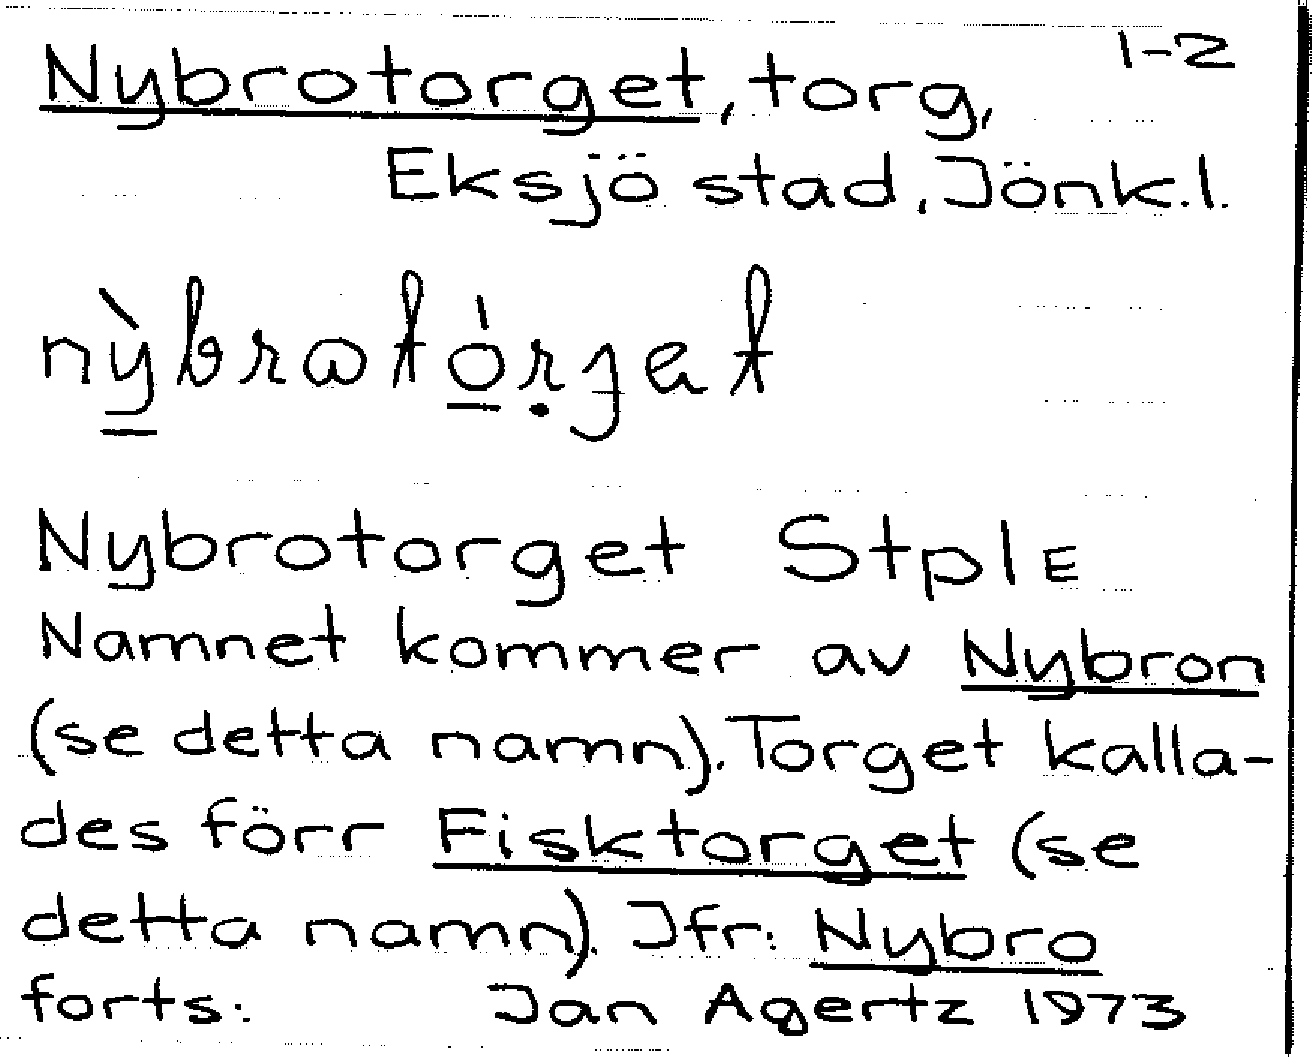 1-2
Nybrotorget, torg,
Eksjö stad, Jönk.l.
nỳbratórget
Nybrotorget Stpl E
Namnet kommer av Nybron
(se detta namn). Torget kalla-
des förr Fisktorget (se
detta namn). Jfr: Nybro
forts: Jan Agertz 1973